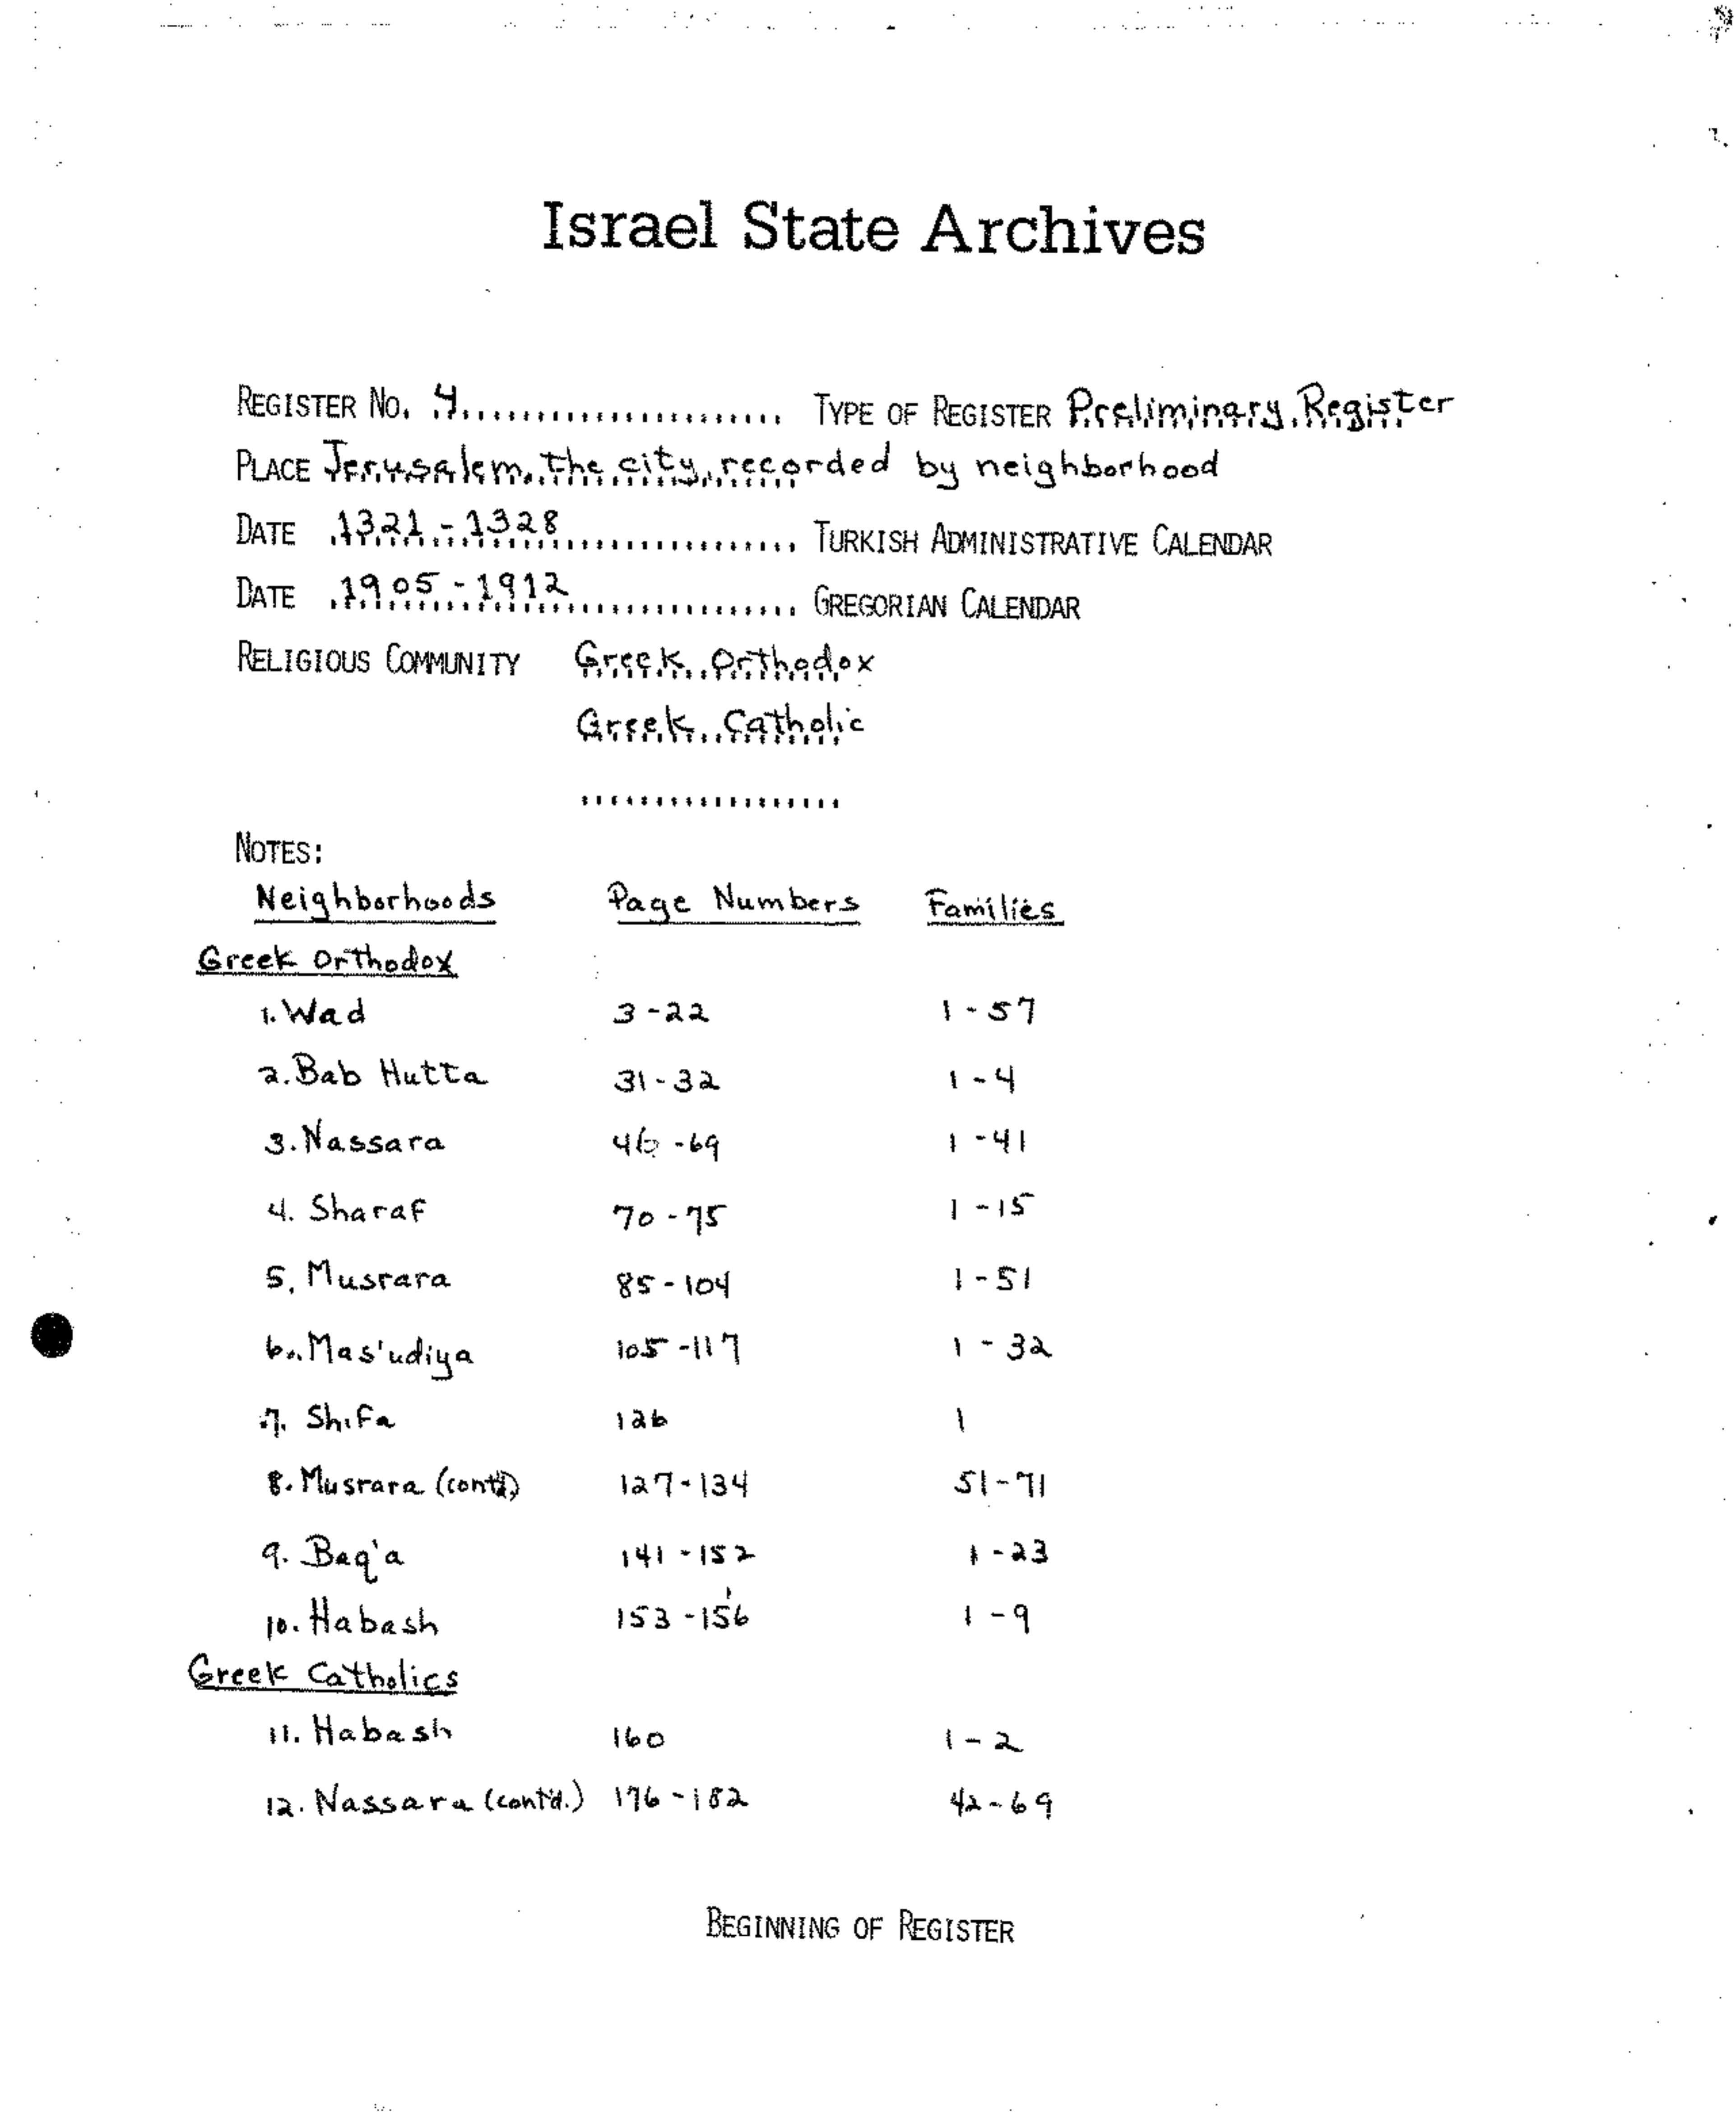 Israel State Archives
REGISTER NO. 4 TYPE OF REGISTER Preliminary Register
PLACE Jerusalem, the city, recorded by neighborhood
DATE 1321 - 1328 TURKISH ADMINISTRATIVE CALENDAR
DATE 1905 - 1912 GREGORIAN CALENDAR
RELIGIOUS COMMUNITY Greek Orthodox
Greek Catholic
NOTES:
Neighborhoods Page Numbers Families
Greek Orthodox
1. Wad 3-22 1-57
2. Bab Hutta 31-32 1-4
3. Nassara 46-69 1-41
4. Sharaf 70-75 1-15
5. Musrara 85-104 1-51
6. Mas'udiya 105-117 1-32
7. Shifa 126 1
8. Musrara (cont'd) 127-134 51-71
9. Baq'a 141-152 1-23
10. Habash 153-156 1-9
Greek Catholics
11. Habash 160 1-2
12. Nassara (cont'd.) 176-182 42-69
BEGINNING OF REGISTER